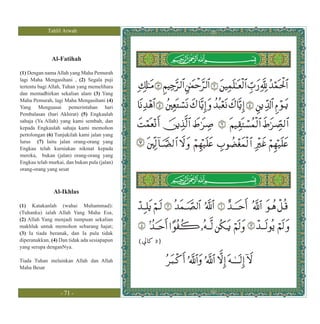 Tahlil Arwah
Al-Fatihah
(1) Dengan nama Allah yang Maha Pemurah
lagi Maha Mengasihani . (2) Segala puji
tertentu bagi Allah, Tuhan yang memelihara
dan mentadbirkan sekalian alam (3) Yang
Maha Pemurah, lagi Maha Mengasihani (4)
Yang Menguasai pemerintahan hari
Pembalasan (hari Akhirat) (5) Engkaulah
sahaja (Ya Allah) yang kami sembah, dan
kepada Engkaulah sahaja kami memohon
pertolongan (6) Tunjukilah kami jalan yang
lurus (7) Iaitu jalan orang-orang yang
Engkau telah kurniakan nikmat kepada
mereka, bukan (jalan) orang-orang yang
Engkau telah murkai, dan bukan pula (jalan)
orang-orang yang sesat
Al-Ikhlas
(1) Katakanlah (wahai Muhammad):
(Tuhanku) ialah Allah Yang Maha Esa,
(2) Allah Yang menjadi tumpuan sekalian
makhluk untuk memohon sebarang hajat;
(3) Ia tiada beranak, dan Ia pula tidak
diperanakkan, (4) Dan tidak ada sesiapapun
yang serupa denganNya.
Tiada Tuhan melainkan Allah dan Allah
Maha Besar
- 71 -
بِسْمِ اللَّهِ الرَّحْمَٰنِ الرَّحِيمِ
الْحَمْدُ لِلَّهِ رَبِّ الْعَالَمِينَ ۝ الرَّحْمَٰنِ الرَّحِيمِ ۝ مَالِكِ
يَوْمِ الدِّينِ ۝ إِيَّاكَ نَعْبُدُ وَإِيَّاكَ نَسْتَعِينُ ۝ اهْدِنَا
الصِّرَاطَ الْمُسْتَقِيمَ ۝ صِرَاطَ الَّذِينَ أَنْعَمْتَ
عَلَيْهِمْ غَيْرِ الْمَغْضُوبِ عَلَيْهِمْ وَلَا الضَّالِّينَ ۝
بِسْمِ اللَّهِ الرَّحْمَٰنِ الرَّحِيمِ
قُلْ هُوَ اللَّهُ أَحَدٌ ۝ اللَّهُ الصَّمَدُ ۝ لَمْ يَلِدْ
وَلَمْ يُولَدْ ۝ وَلَمْ يَكُن لَّهُ كُفُوًا أَحَدٌ ۝
(٣ كالي)
لَا إِلَٰهَ إِلَّا اللَّهُ وَاللَّهُ أَكْبَرُ